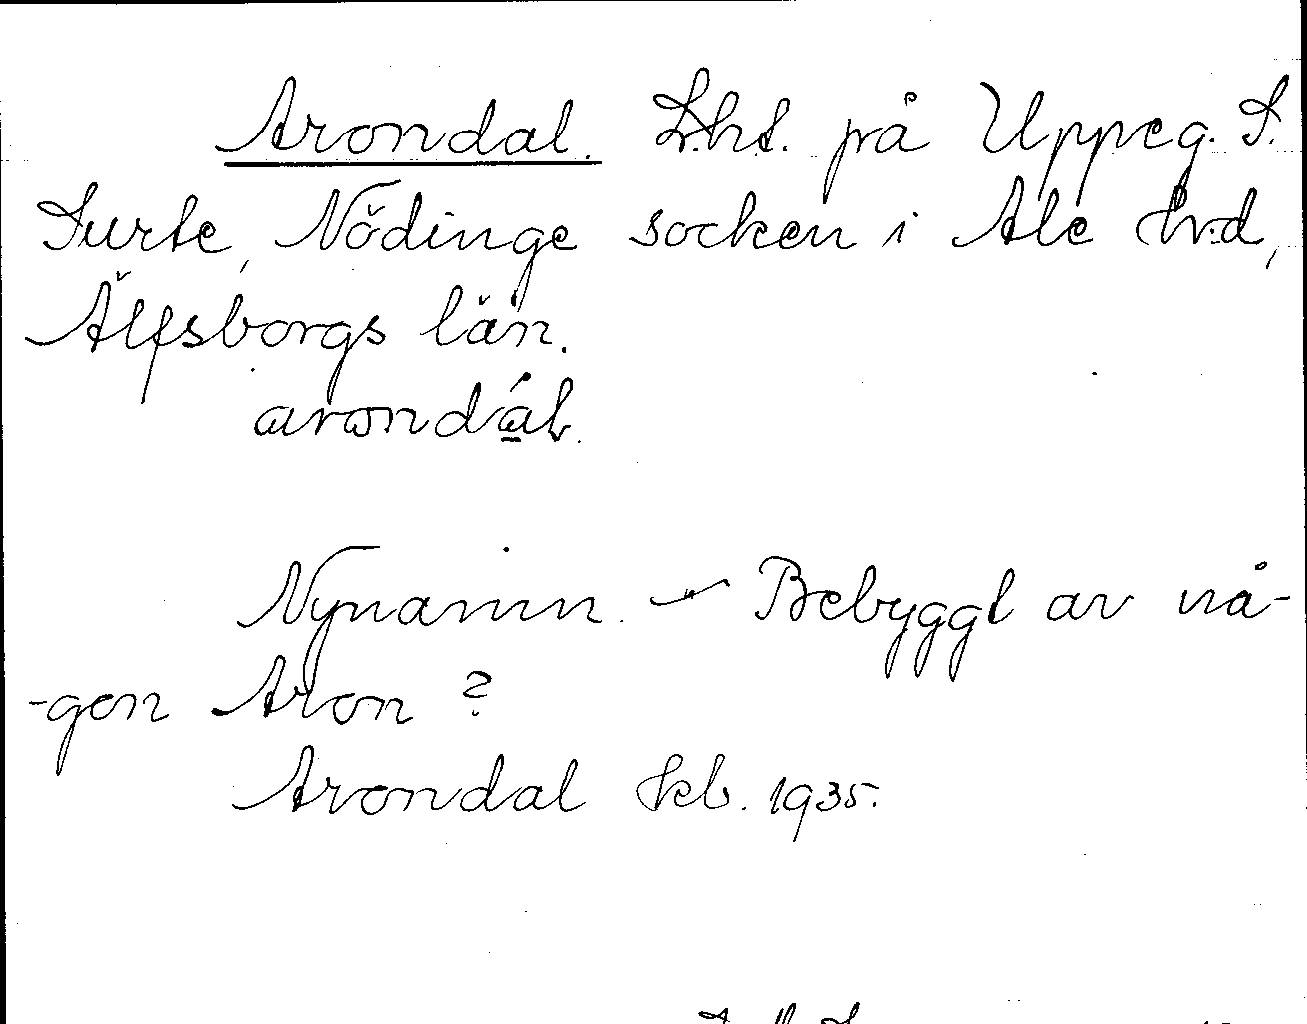 Arondal. Lht. på Uppeg. S.
Surte, Nödinge socken i Ale hrd,
Älfsborgs län.
arondáL.
Nynamn. - Bebyggt av nå-
-gon Aron?
Arondal Jkb. 1935.